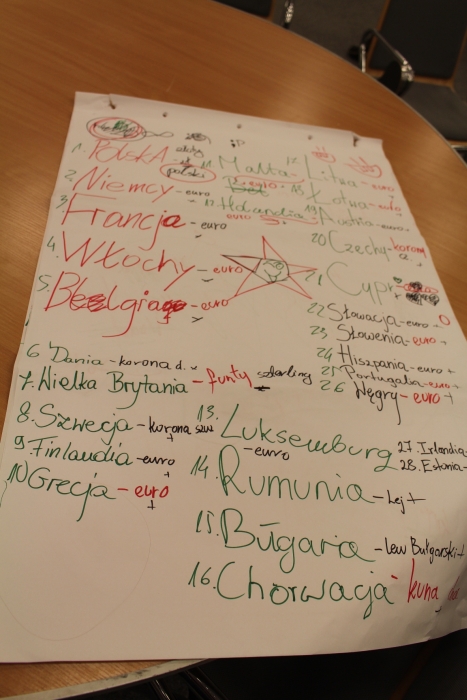 1. Polska - złoty polski
2. Niemcy - euro
3. Francja - euro
4. Włochy - euro
5. Belgia - euro
6. Dania - korona d.
7. Wielka Brytania - funty szterling
8. Szwecja - korona szw
9. Finlandia - euro
10 Grecja - euro
11 Malta -
Euro
17. Holandia
euro
13. Luksemburg
- euro
14. Rumunia - Lej +
15. Bułgaria - lew Bułgarski +
16. Chorwacja - kuna
Litwa - euro
18 Łotwa - euro
19 Austria - euro
20 Czechy - korona
21 Cypr
22 Słowacja - euro
23 Słowenia - euro +
24 Hiszpania - euro +
25 Portugalia - euro +
26 Węgry - euro +
27. Irlandia -
28. Estonia -